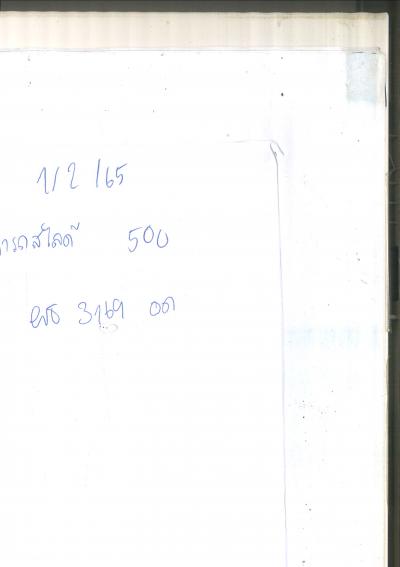 1/2/65
ารถสไลด์ 500
ผธ 3169 อด